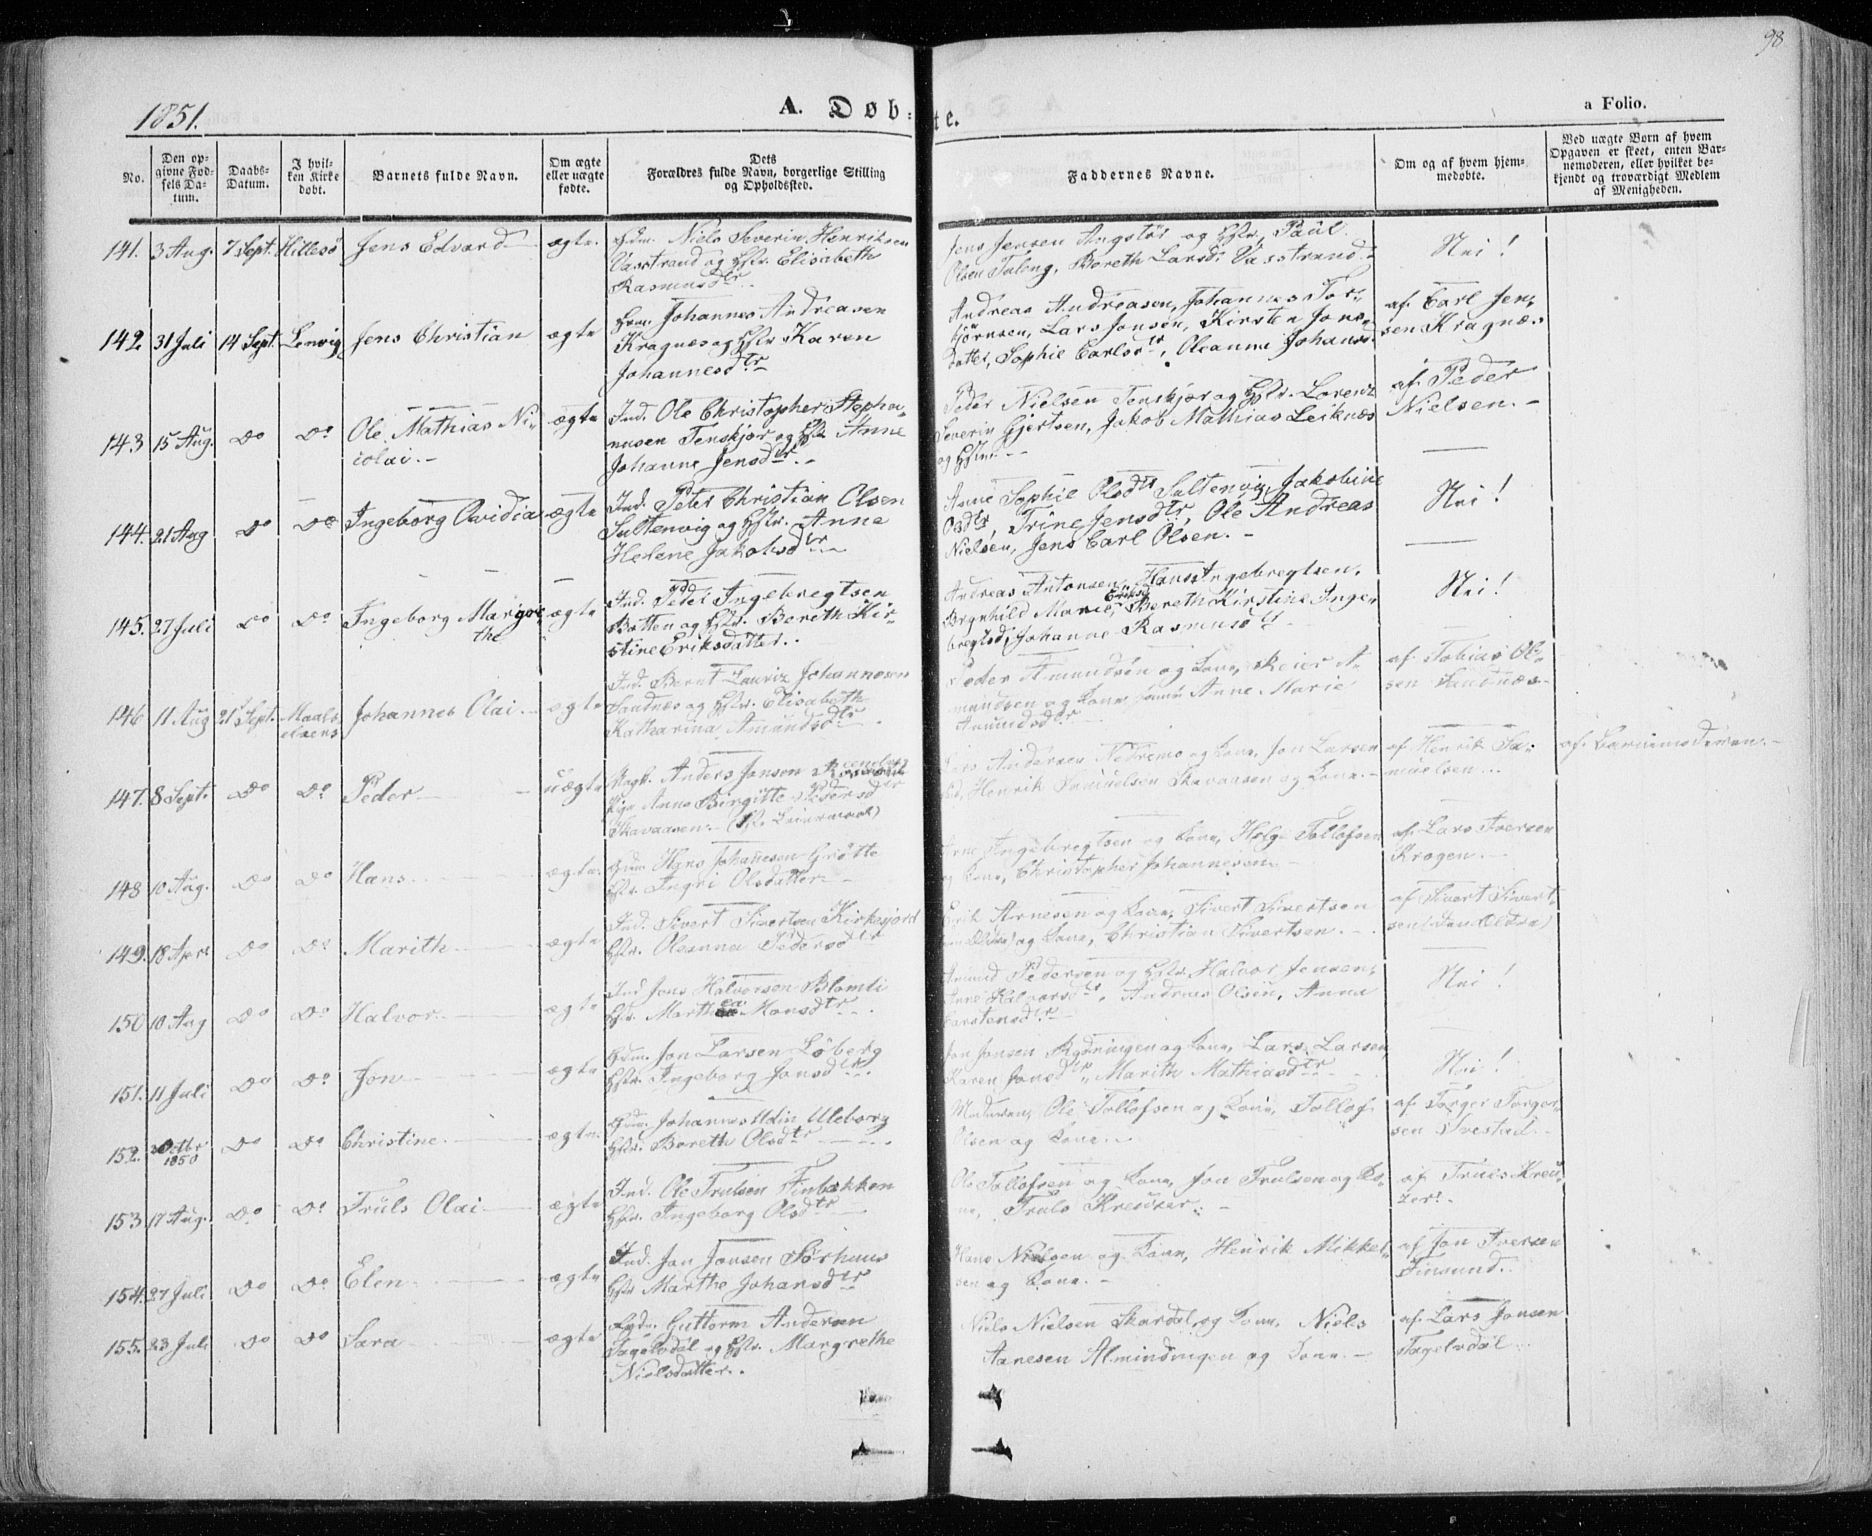 98
1851.
A. Døb-
te.
a Folio.
No.
Den op-
givne Fød-
sels Da-
tum.
Daabs-
Datum.
I hvil-
ken Kirke
døbt.
Barnets fulde Navn.
Om ægte
eller uægte
fødte.
Dets
Forældres fulde Navn, borgerlige Stilling
og Opholdssted.
Faddernes Navne.
Om og af hvem hjem-
medøbte.
Ved uægte Børn af hvem
Opgaven er skeet, enten Bar-
nemoderen, eller hvilket be-
kjendt og troværdigt Medlem
af Menigheden.
141. 3 Aug. 7 Sept. Hillesø Jens Edvard ægte.
Hum. Niels Severin Henriksen
Vasstrand og Hstr. Elisabeth
Rasmusdtr.
Jens Jensen Angstør og Hstr. Paul
Olsen Tuleng, Bereth Larsd. Vasstrand
Nei!
142. 31 Juli 14 Sept. Lenvig Jens Christian ægte
Hum. Johannes Andreasen
Kragnæs og Hstr. Karen
Johannesdtr
Andreas Andreasen, Johannes Tor-
bjørnsen, Lars Jonsen, Kirsten Jons-
datter, Sophie Carlsdtr, Oleanne Johansd.
af Carl Jen-
sen Kragnæs
143 15 Aug. Do Do Ole Mathias Ni-
colai. ægte
Ind. Ole Christopher Stepha-
nusen Tenskjær og Hstr Anne
Johanne Jensdtr.
Peder Nielsen Tenskjær og Hstr. Lorenz
Severin Gjertsen, Jakob Mathias Leiknæs
og Hstr.
af Peder
Nielsen.
144. 21 Aug Do Do Ingeborg Ovidia ægte
Ind. Peter Christian Olsen
Sultenvig og Hstr. Anne
Helene Jakobsdtr
Anne Sophie Olsdtr Sultenvig, Jakobine
Olsdtr, Trine Jensdtr, Ole Andreas
Nielsen, Jens Carl Olsen.
Nei!
145. 27 Juli Do Do Ingeborg Margre
the ægte
Ind. Peder Ingebregtsen
Botten og Hstr. Bereth Kir-
stine Eriksdatter.
Andreas Antonsen, Hans Ingebregtsen,
Brynhild Marie Eriksd, Bereth Kirstine Inge-
bregtsd, Johanne Rasmusdtr
Nei!
146 11 Aug 21 Sept. Maals
elvens Johannes Olai ægte
Ind. Bernt Lauriz Johannesen
Sandnæs og Hstr. Elisabeth
Katharina Amundsdtr
Peder Amundsen og Kone, Reier A-
mundsen og Kone, Anne Marie
Amundsdtr
af Tobias Ol-
sen Sandnæs
147. 8 Sept. Do Do Peder uægte
Ungk. Anders Jonsen
Pige Anne Birgitte Pedersdtr
Skavaasen. (1ste Leiermaal)
Andersen Nedremo og Kone, Jon Larsen
Henrik Samuelsen Skavaasen og Kone.
af Henrik Sa-
muelsen
af Barnemoderen.
148 10 Aug. Do Do Hans ægte.
Hum Hans Johannesen Grøtte
Hstr. Ingri Olsdatter
Arne Ingebregtsen og Kone, Helge Tollofsen
og Kone, Christopher Johannesen
af Lars Iversen
Krogen.
149. 18 April Do Do Marith ægte
Ind. Sivert Sivertsen Kirkesjord
Hstr. Oleanna Pedersdtr
Erik Arnesen og Kone, Sivert Sivertsen
og Kone, Christian Sivertsen.
af Sivert Sivert-
sen (den Eldre)
150 10 Aug Do Do Halvor ægte
Ind Jens Halvorsen Blomli
Hstr. Marthea Monsdtr
Amund Pedersen og Hstr. Halvor Jensen,
Anne Halvorsdtr, Andreas Olsen, Anna
Carstensdtr
Nei!
151. 11 Juli Do Do Jon ægte
Hum. Jon Larsen Løberg
Hstr. Ingeborg Jonsdtr
Jon Jonsen Rydningen og Kone, Lars Larsen,
Karen Jonsdtr, Marith Mathiasdtr
Nei!
152. Octbr
1850 Do Do Christine ægte.
Hum. Johannes Odin Uleborg
Hstr. Bereth Olsdtr
Moderen, Ole Tollofsen og Kone, Tollof
Olsen og Kone.
af Torger Torger-
sen Ovestad
153 17 Aug. Do Do Truls Olai ægte
Ind. Ole Trulsen Finbakken
Hstr. Ingeborg Olsdtr
Ole Tollofsen og Kone, Jon Trulsen og Ko-
ne, Truls Kreuzer.
af Truls Kreu-
zer.
154. 27 Juli Do Do Elen ægte
Ind. Jon Jonsen Sørhuus
Hstr Marthe Johansdtr
Hans Nielsen og Kone, Henrik Mikkel-
sen og Kone.
af Jon Iversen
Finsund
155. 23 Juli Do Do Sara ægte
Guttorm Andersen
Fagelvdal og Hstr. Margrethe
Nielsdatter.
Niels Nielsen Skardal og Kone, Niels
Aanesen Almindingen og Kone
af Lars Jonsen
Fagelvdal